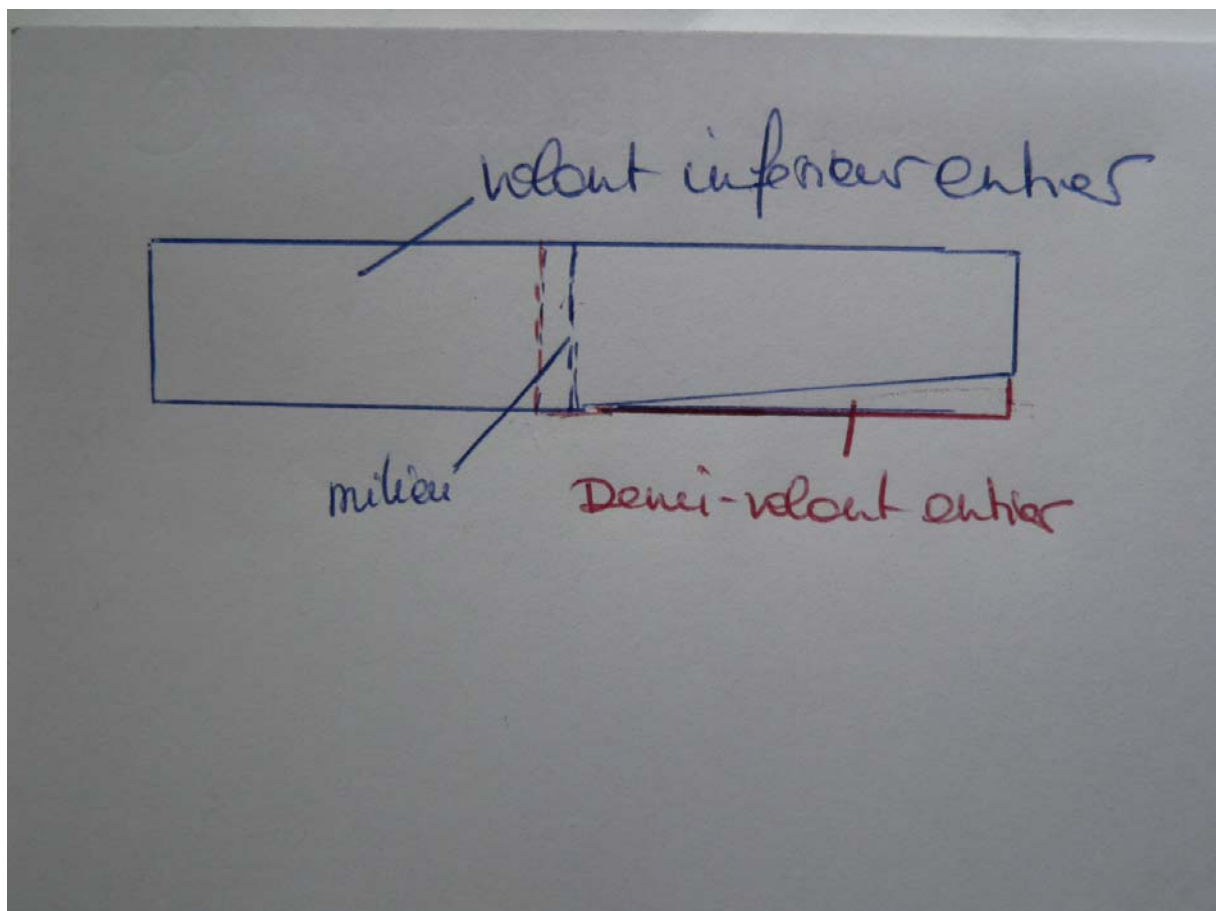 volant inférieur entier
milieu
Demi-volant entier